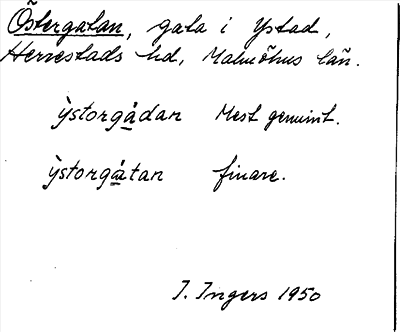 Östergatan, gata i Ystad,
Herrestads hd, Malmöhus län.
ỳstorgådan Mest genuint.
ỳstorgåtan finare.
I. Ingers 1950